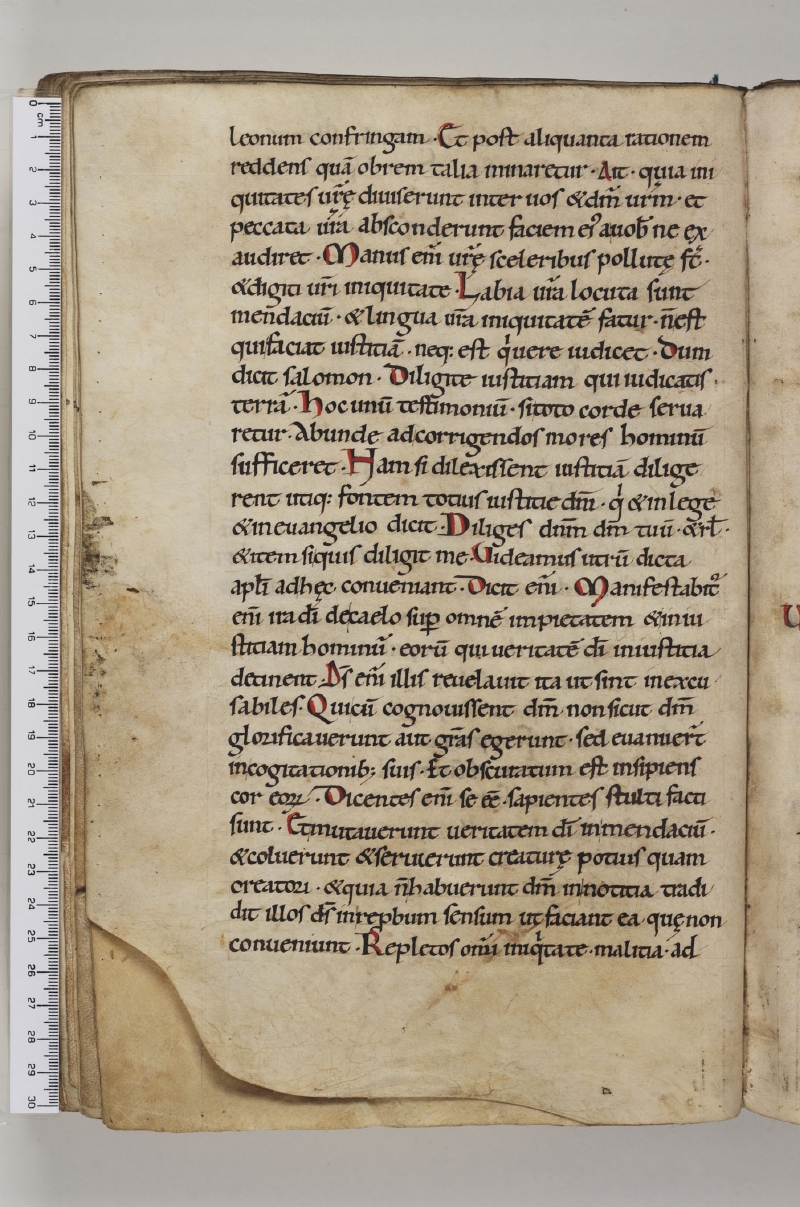 leonum confringam · Et post aliquanta rationem
reddens quā obrem talia minaretur · Ait · quia ini
quitates ur̄ę diuiserunt inter uos & dm̄ urm̄ · et
peccata ur̄a absconderunt faciem ei᾽ a uob̄ ne ex
audiret · Manus eni̅ ur̄ę sceleribus pollutę st̄ ·
& digiti ur̄i iniquitate · Labia ur̄a locuta sunt
mendaciū · & lingua ur̄a iniquitatē fatur · n̄ est
qui faciat iustitiā · neq; est q̍ uere iudicet · Dum
dicit salomon · Diligite iustitiam qui iudicatis ·
terrā · Hoc unū testimoniū · si toto corde serua
retur · Abunde ad corrigendos mores hominū
sufficeret · Nam si dilexissent iustitiā dilige
rent utiq; fontem totius iustitie dm̄ · q̍ & in lege
& in euangelio dicit · Diliges dnm̄ dm̄ tuū · & rl̄ ·
& item siquis diligit me · Uideamus utrū dicta
apl̄i ad hęc conueniant · Dicit eni̅ · Manifestabit᾽
eni̅ ira dī de caelo sup̄ omnē impietatem & iniu
stitiam hominū · eorū qui ueritatē dī in iustitia
detinent · Ds̄ eni̅ illis reuelauit ita ut sint inexcu
sabiles · Qui cū cognouissent dm̄ non sicut dm̄
glorificauerunt aut gr̄as egerunt · sed euanuer̄t
in cogitationib; suis · Et obscuratum est insipiens
cor eoꝝ · Dicentes eni̅ se eē · sapientes stulti facti
sunt · Et mutauerunt ueritatem dī in mendaciū ·
& coluerunt & seruierunt creaturę potius quam
creatori · & quia n̄ habuerunt dm̄ in notitia tradi
dit illos ds̄ in repbum sensum ut faciant ea quę non
conueniunt · Repletos omi̅ iniq̍tate · malitia · ad